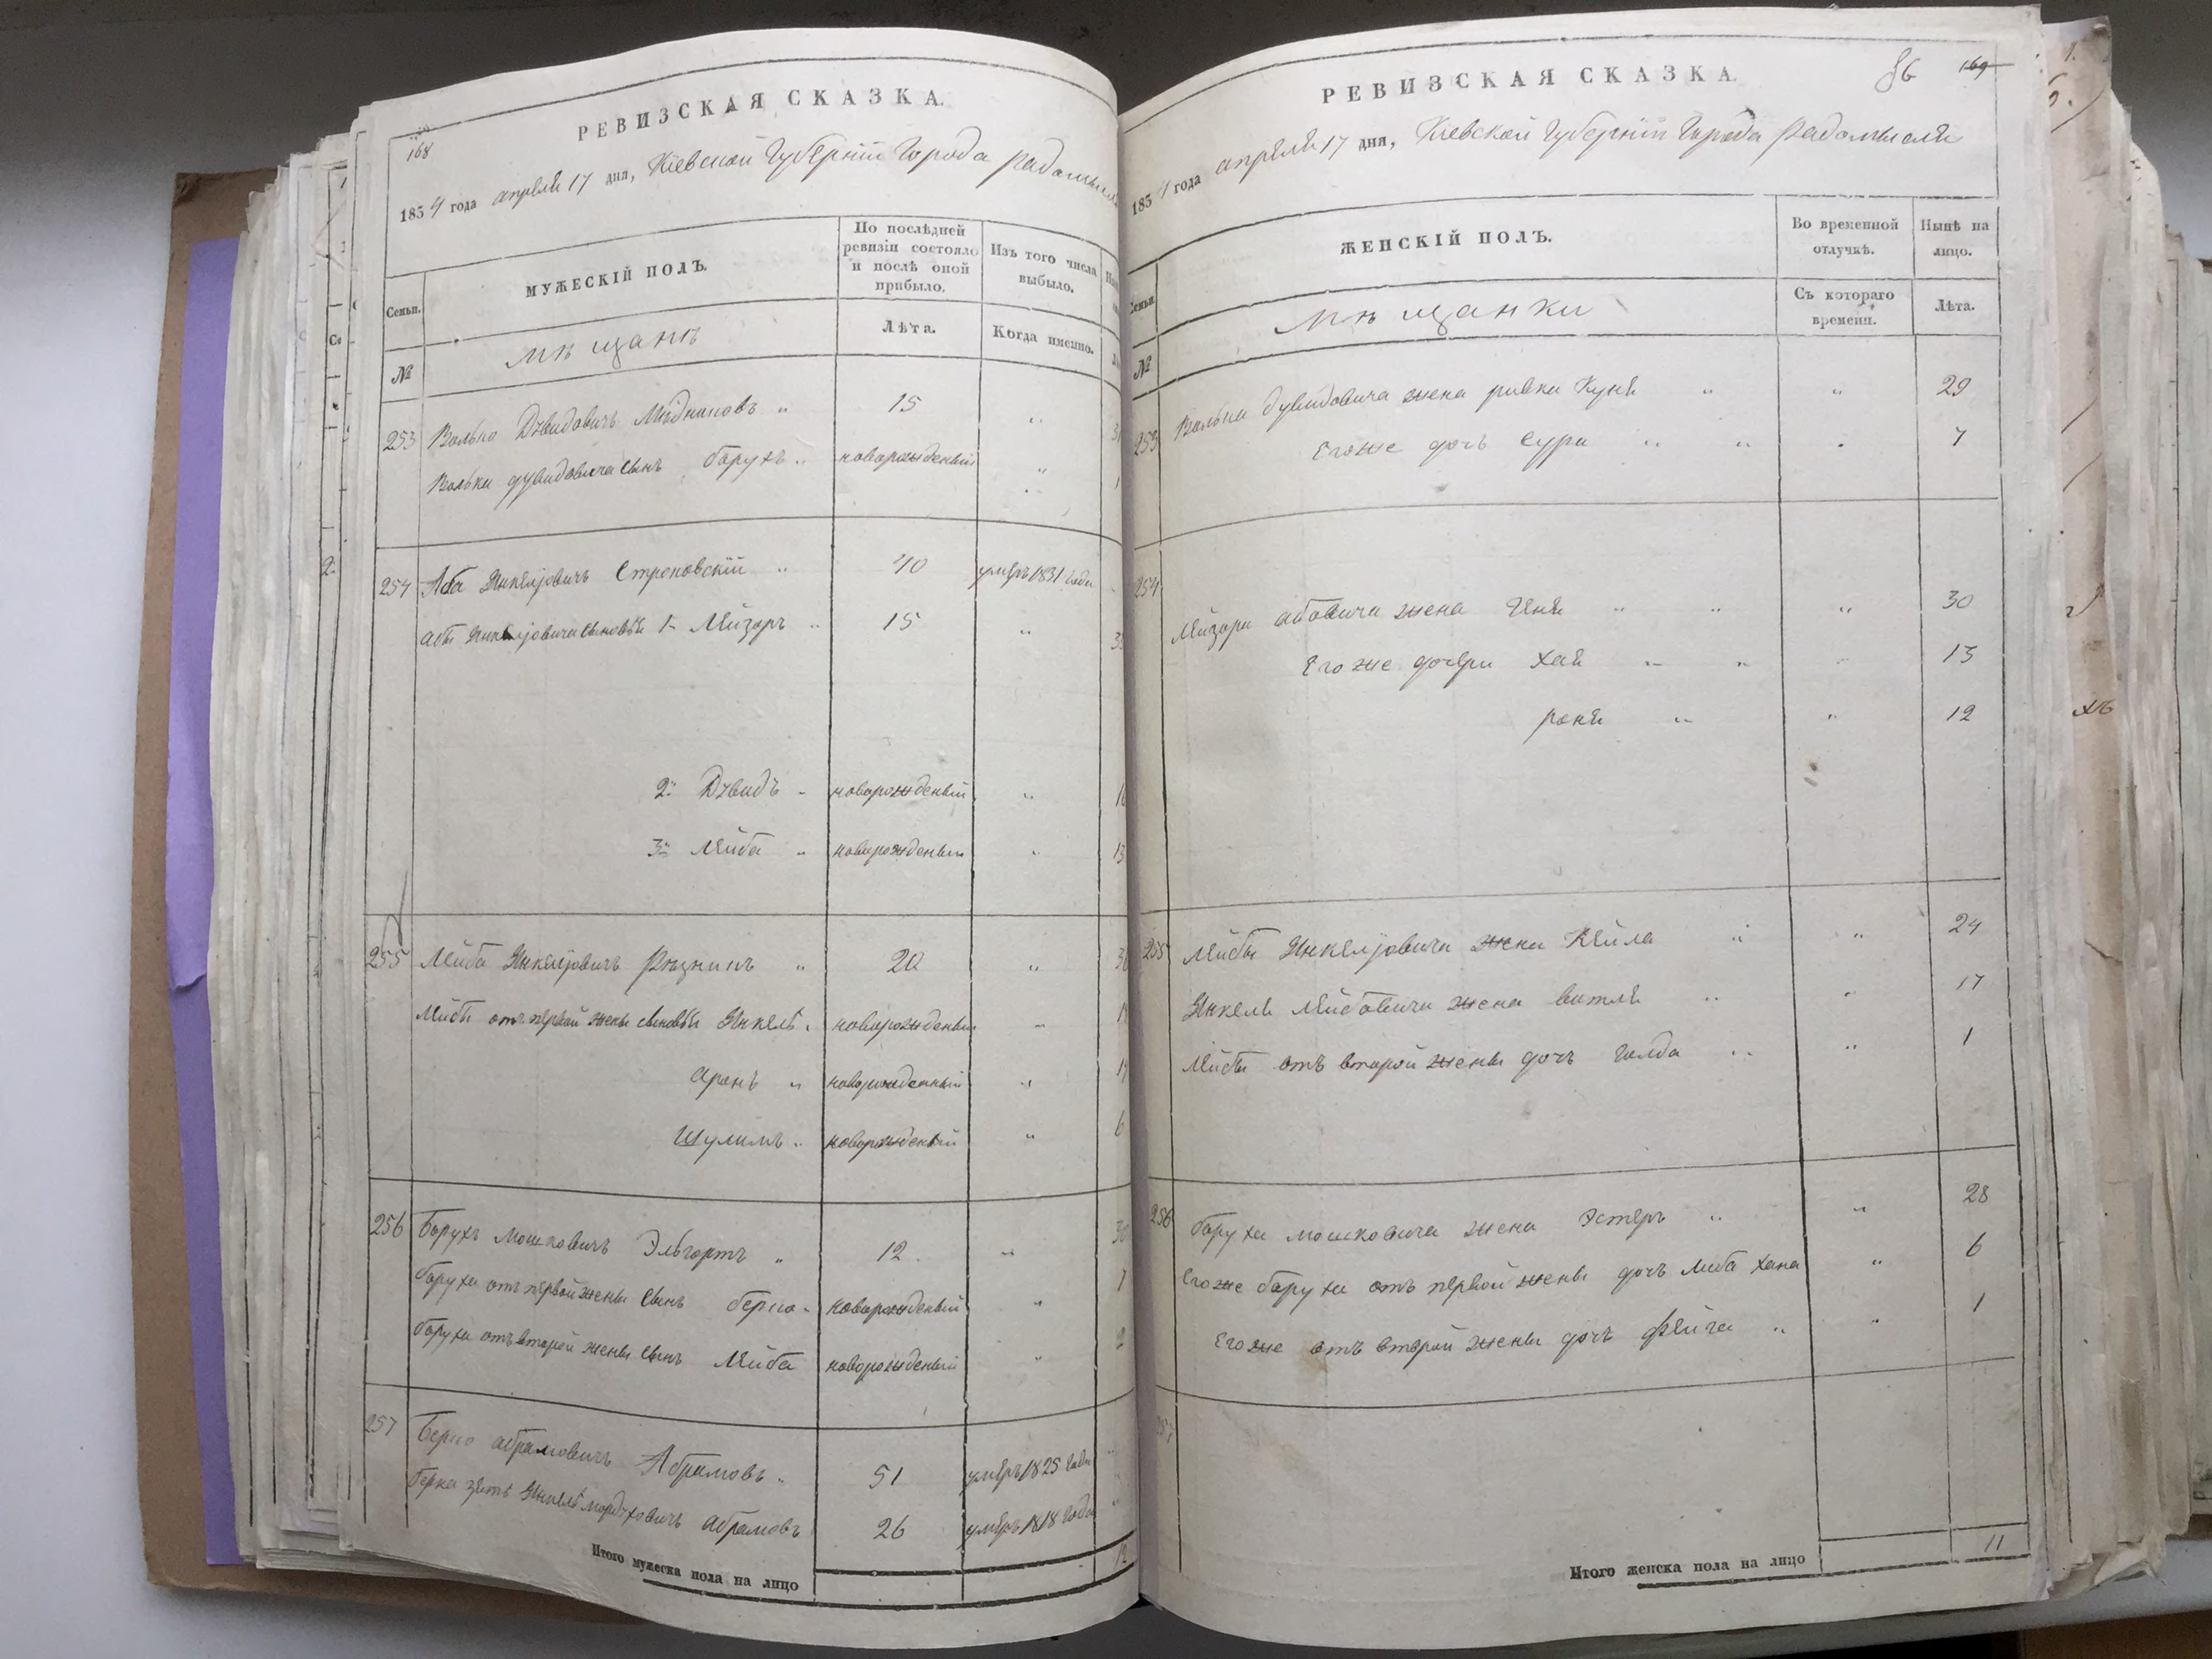 168
РЕВИЗСКАЯ СКАЗКА.
1854 года апреля 17 дня, Кіевской Губерніи Города Радомысля
Семьи.
МУЖЕСКІЙ ПОЛЪ.
По послѣдней ревизіи состояло и послѣ оной прибыло.
Изъ того числа выбыло.
№
мѣщанъ
Лѣта.
Когда именно.
253 Волько Дувидовичъ Мѣдниковъ " 15 "
Волька дувидовича сынъ борухъ " новорожденый "
254 Аба Янкелiовичъ Стреповскій " 40 умеръ 1831 года
абы Янкелiовича сыновья 1й Лейзоръ " 15 "
2й Дувидъ " новорожденый "
3й Лейба " новорожденый "
255 Лейба Янкелiовичъ Рѣзникъ " 20 "
Лейбы отъ первой жены сыновья Янкель " новорожденый "
аронъ " новорожденный "
Шулимъ " новорожденый "
256 Борухъ мошковичъ Эльгортъ " 12 "
боруха отъ первой жены сынъ берко " новорожденый "
боруха отъ второй жены сынъ Лейба новорожденый "
257 Берко абрамовичъ Абрамовъ " 51 умеръ 1825 года
берка зять Янкель мордуховичъ абрамовъ 26 умеръ 1818 года
Итого мужеска пола на лицо 12
86 169
РЕВИЗСКАЯ СКАЗКА.
1854 года апреля 17 дня, Кіевской Губерніи Города Радомысля
Семьи.
ЖЕНСКІЙ ПОЛЪ.
Во временной отлучкѣ.
Нынѣ на лицо.
№
мѣщанки
Съ котораго времени.
Лѣта.
253 Волька дувидовича жена ривка Куня " " 29
Егоже дочь Сура " " " 7
254
Лейзора абовича жена Геня " " " 30
Егоже дочери хая " " " 13
роня " " 12
255 Лейбы Янкелiовича жена Кейла " " 24
Янкеля Лейбовича жена витля " " 17
Лейбы отъ второй жены дочь голда " " 1
256 боруха мошковича жена Эстеръ " " 28
Егоже боруха отъ первой жены дочь либа хана " 6
Егоже отъ второй жены дочь фейга " " 1
257
Итого женска пола на лицо 11